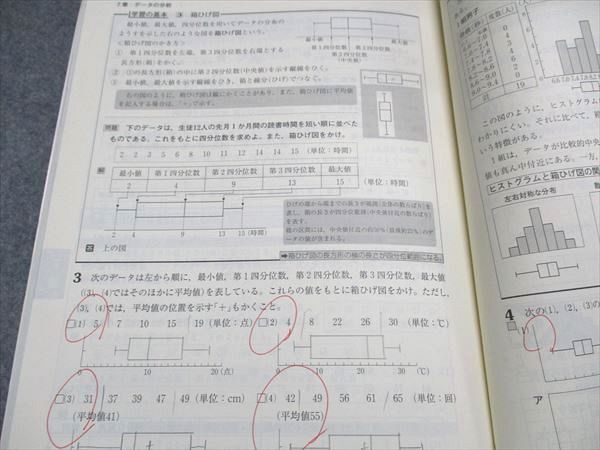 7章 データの分析
学習の基本 ③ 箱ひげ図
最小値，最大値，四分位数を用いてデータの分布の
ようすを示した右のような図を箱ひげ図という。
最小値
最大値
第1四分位数
第3四分位数
第2四分位数
(中央値)
<箱ひげ図のかき方>
① 第1四分位数を左端，第3四分位数を右端とする
長方形(箱)をかく。
② ①の長方形(箱)の中に第2四分位数(中央値)を示す縦線をひく。
③ 最小値，最大値を示す縦線をひき，箱と線分(ひげ)でつなぐ。
右の図のように，箱ひげ図は縦にかくことがあり，また，箱ひげ図に平均値
を記入する場合は，「+」で示す。
問題 下のデータは，生徒12人の先月1か月間の読書時間を短い順に並べた
ものである。これをもとに四分位数を求めよ。また，箱ひげ図をかけ。
2 2 3 5 6 7 11 12 12 14 14 15 (単位：時間)
解
最小値 第1四分位数 第2四分位数 第3四分位数 最大値
2 4 9 13 15 (単位：時間)
2 4 9 13 15 (時間)
答 上の図
➡箱ひげ図の長方形の横の長さが四分位範囲になる。
3 次のデータは左から順に，最小値，第1四分位数，第2四分位数，第3四分位数，最大値
((3)，(4)ではそのほかに平均値)を表している。これらの値をもとに箱ひげ図をかけ。ただし，
(3)，(4)では，平均値の位置を示す「+」もかくこと。
□(1) 5 7 10 15 19 (単位：点)
□(2) 4 8 22 26 30 (単位：℃)
0 10 20 (点)
0 10 20 30 (℃)
□(3) 31 37 39 47 49 (単位：cm)
(平均値41)
□(4) 42 49 56 61 65 (単位：回)
(平均値55)
19
0
この図のように，ヒストグラ
わかりにくい。それに比べて，
いう特徴がある。
1組は，データが比較的中央
値も真ん中付近にある。一方，
ヒストグラムと箱ひげ図の関
左右対称な分布
4 次の(1)，(2)，(3)の
□(1)
ア